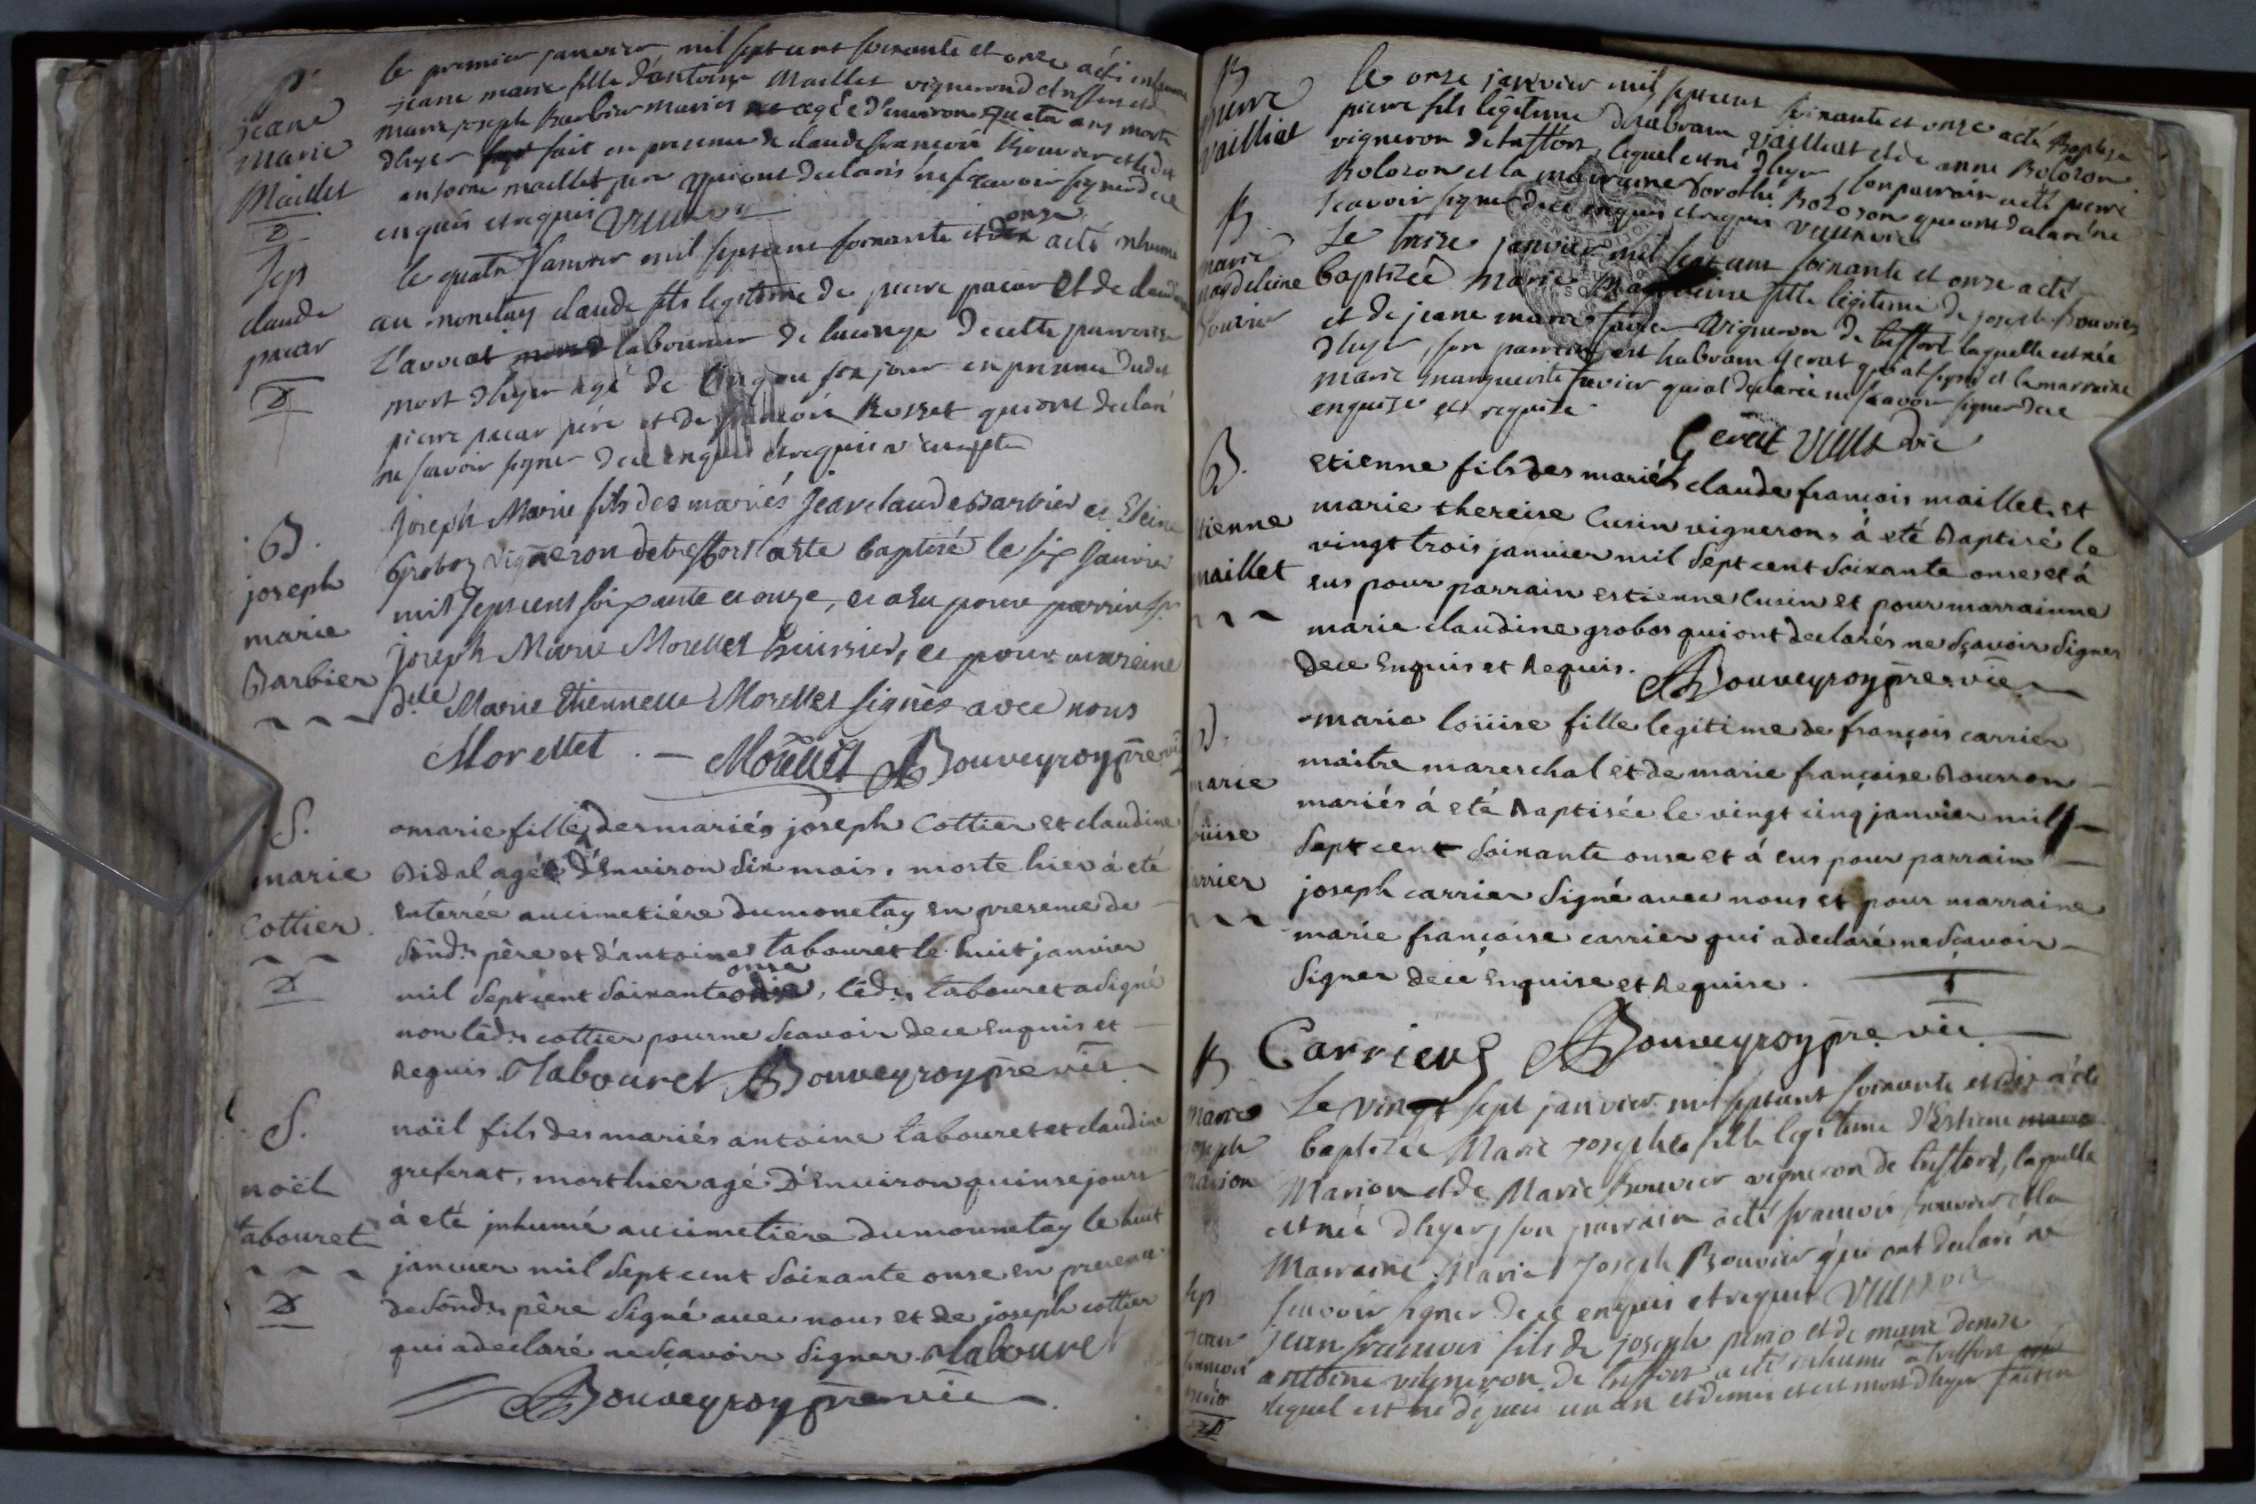 jeane
marie
Maillet
le premier janvier mil sept cent soixante et onze a été inhumé
jeane marie fille d'antoine Maillet vigneron de treffort et de
marie joseph Barbier mariés agée d'environ quatre ans morte
d'hyer fait en presence de claude françois Bouvier et dudit
antoine maillet pere qui ont declarés ne scavoir signer de ce
enquis et requis
Sep
claude
pacar
le quatre janvier mil sept cent soixante et onze a été inhumé
au monetay claude fils legitime de pierre pacar et de claudine
L'avocat laboureur de lucenge de cette parroisse
mort d'hyer agé de cinq ou six jour en presence dudit
pierre pacar pére et de françois Rosset qui ont declaré
ne scavoir signer de ce enquis et requis
B.
joseph
marie
Barbier
Joseph Marie fils des mariés Jean claude Barbier et
Groboz vigneron de treffort a été baptisé le six Janvier
mil sept cent soixante et onze, et a eu pour parrin Sr.
Joseph Marie Morellet huissier, et pour mareine
dlle Marie Etiennette Morellet signés avec nous
Morellet . — Morellet Bouveyroy pre vic
S.
marie
Cottier.
marie fille des mariés joseph Cottier et claudine
Bidal agée d'environ six mois, morte hier à eté
enterrée au cimetiére du monetay en presence de
sond. pére et d'antoine tabouret le huit janvier
mil sept cent soixante onse, led. tabouret a signé
non led. cottier pour ne scavoir de ce enquis et
requis. Tabouret Bouveyroy pre vic
S.
noël
tabouret
noël fils des mariés antoine tabouret et claudine
greferat, mort hier agé d'environ quinse jours
à eté inhumé au cimetiere du monnetay le huit
janvier mil sept cent soixante onse en presence
de sond. pére signé avec nous et de joseph cottier
qui a declaré ne scavoir signer. Tabouret
Bouveyroy pre vic
B
pierre
vailliat
le onze janvier mil sept cent soixante et onze a été Baptizé
pierre fils légitime d'habram vailliat et de anne Bolozon
vigneron de treffort, lequel est né d'hyer, son parrain a été pierre
Bolozon et la marraine Dorothé Bolozon qui ont declaré ne
scavoir signer de ce enquis et requis
B.
marie
magdeleine
Bouvier
Le treize janvier mil sept cent soixante et onze a été
baptizée marie fille légitime de joseph Bouvier
et de jeane marie favier vigneron de treffort laquelle est née
d'hyer, son parrain est habram Gerat qui at signé et la marraine
marie marguerite favier qui at declarée ne scavoir signer de ce
enquise et requise.
Gerat
B.
etienne
maillet
etienne fils des mariés claude françois maillet et
marie thereise Cusin vignerons à eté Baptisé le
vingt trois janvier mil sept cent soixante onse et à
eus pour parrain estienne Cusin et pour marrainne
marie claudine grobos qui ont declarés ne sçavoir signer
de ce enquis et requis. Bouveyroy pre vic
B.
marie
loüise
carrier
marie loüise fille legitime de françois carrier
maitre mareschal et de marie françoise Bourron
mariés à eté Baptisée le vingt cinq janvier mil
sept cent soixante onse et à eus pour parrain
joseph carrier signé avec nous et pour marraine
marie françoise carrier qui a declaré ne scavoir
signer de ce enquise et requise.
Carrier Bouveyroy pre vic
B
marie
joseph
marion
Le vingt sept janvier mil sept cent soixante et dix a été
baptizée Marie Josephte fille legitime d'Estiene
Marion et de Marie Bouvier vigneron de treffort, laquelle
est née d'hyer, son parrain a été françois Bouvier et la
Marraine Marie Joseph Bouvier qui ont declaré ne
scavoir signer de ce enquis et requis
Sep
jean
françois
jean françois fils de joseph et de marie denise
antoine vigneron de treffort a été inhumé a treffort
lequel est né depuis un an et demis et est mort d'hyer fait en